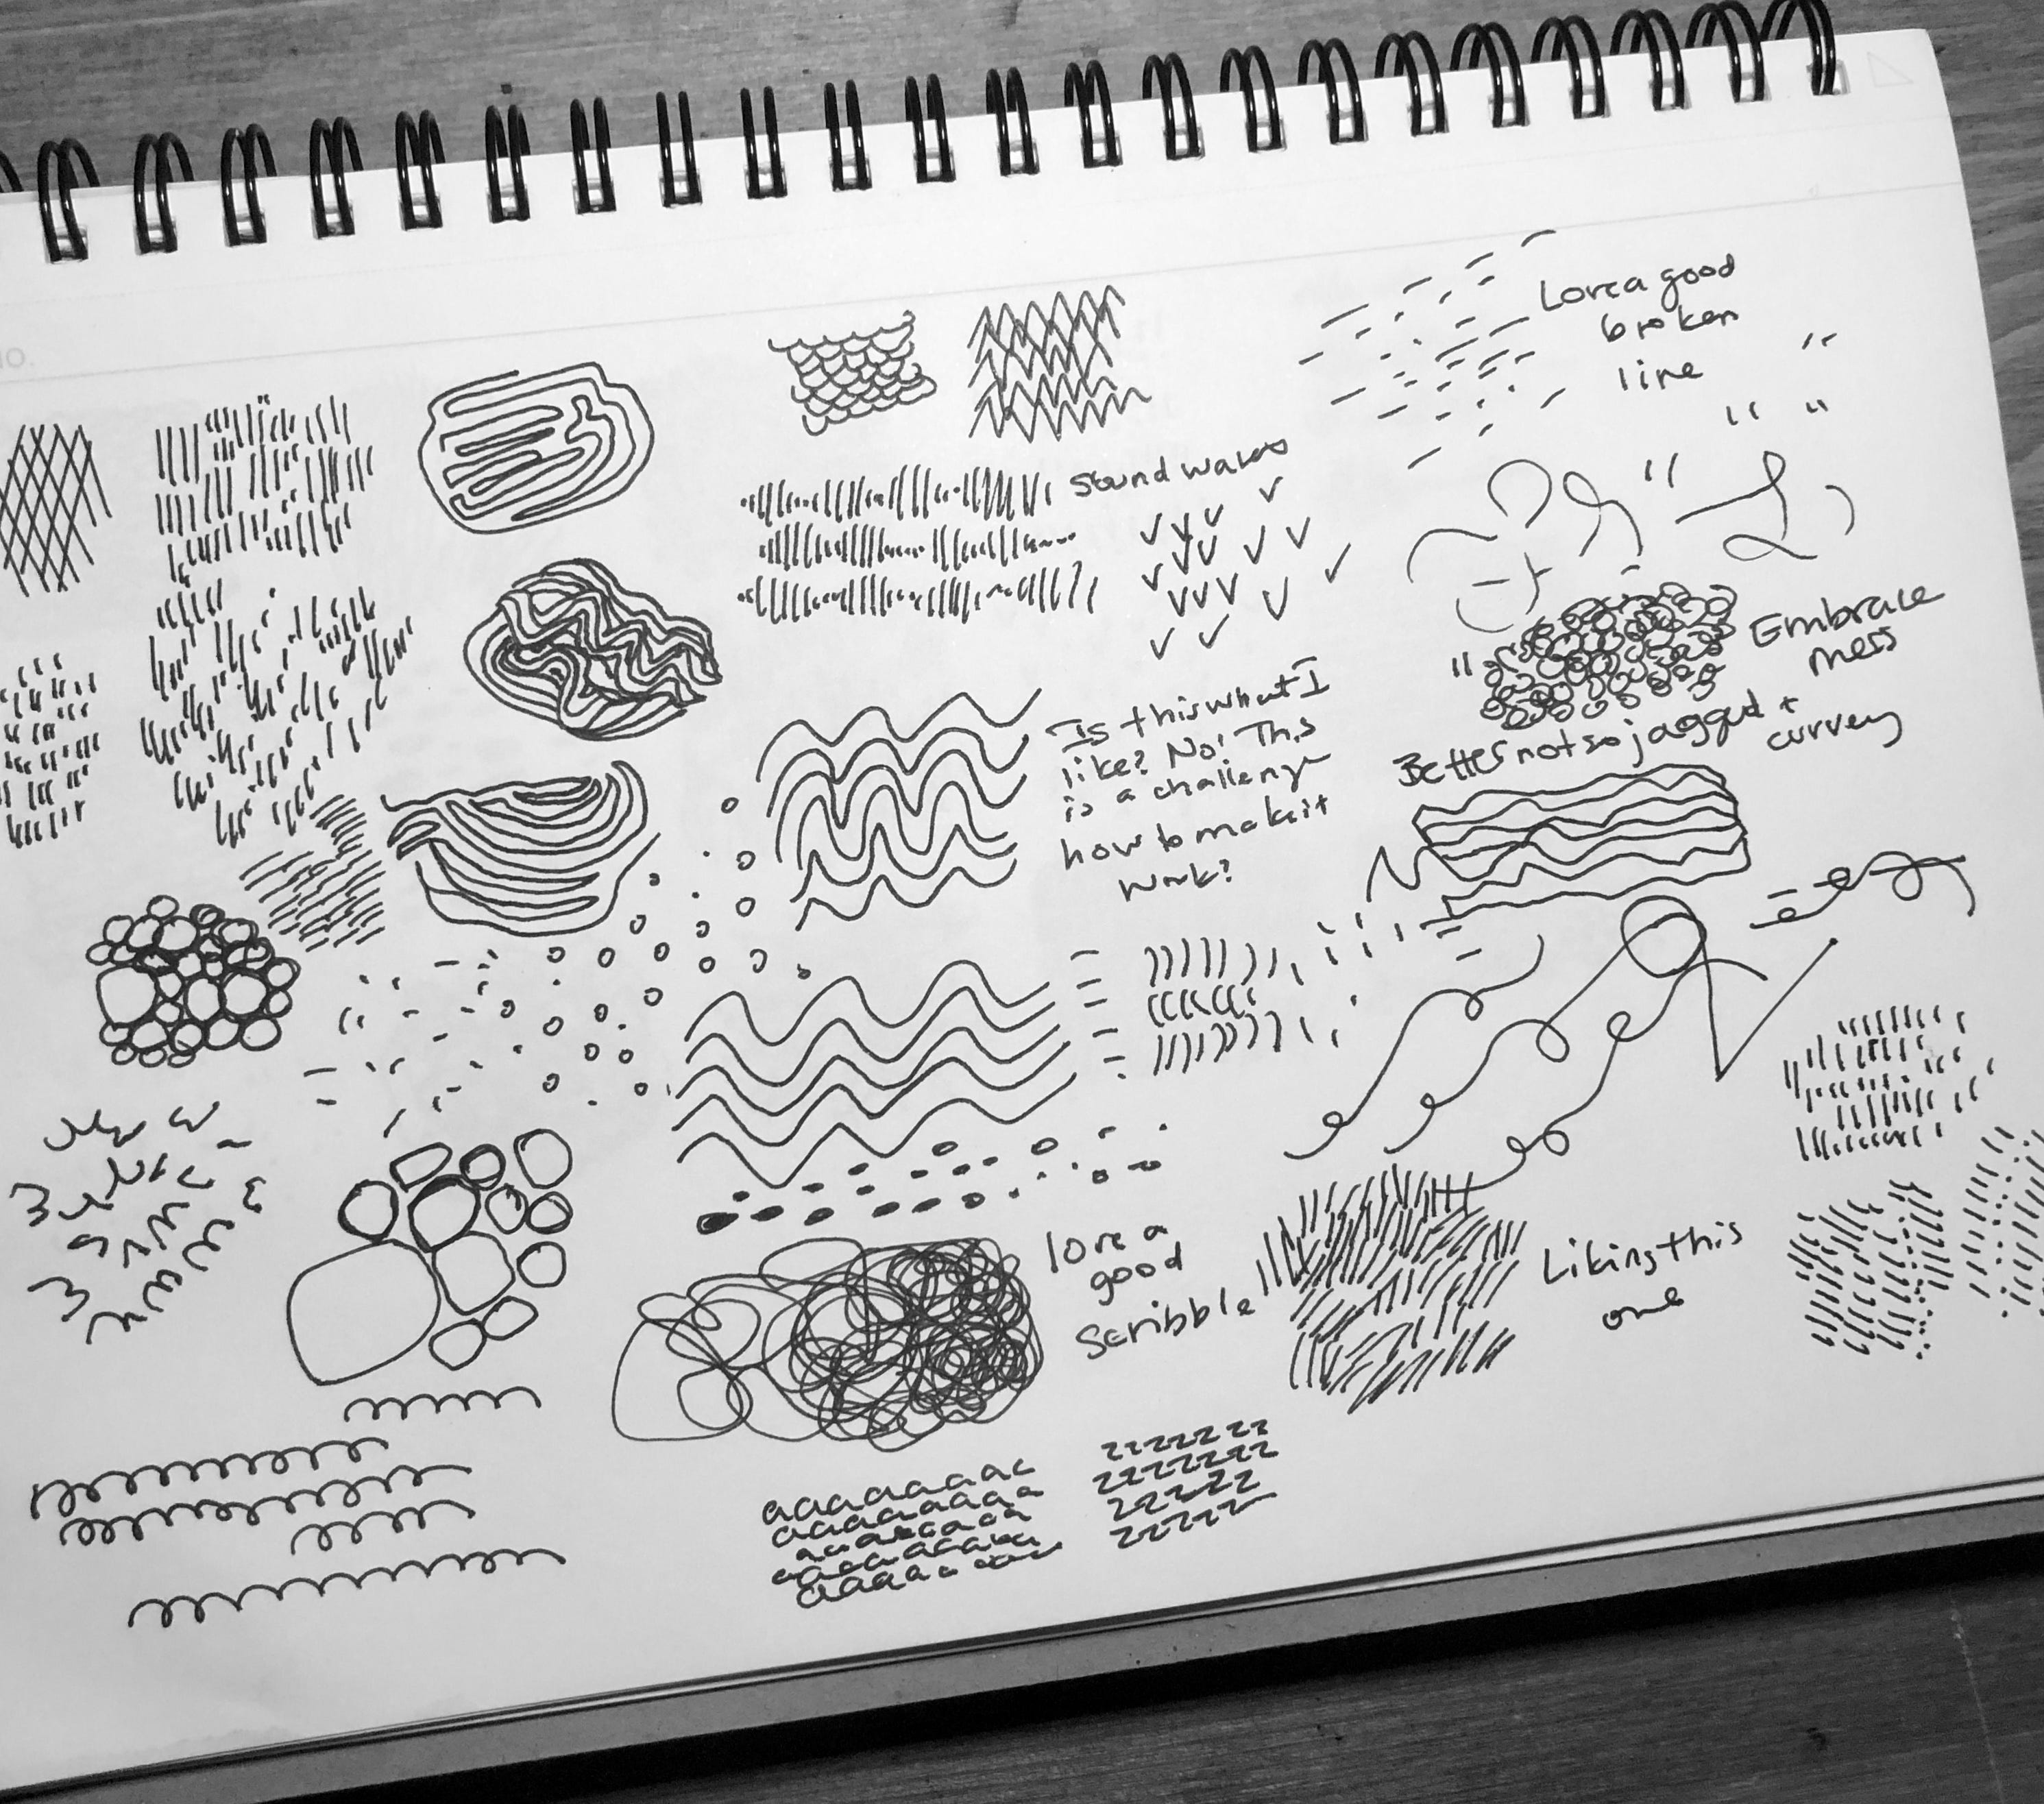 No.
Love a good
broken
line
Sound waves
Embrace
mess
Is this what I
like? No! This
is a challenge
how to make it
work?
Better not so jagged +
curvey
love a
good
scribble
Liking this
one
aaaaaaac
aaaaaaaa
zzzzzz zz
zzzzzzz
zzzzz
zzzzz